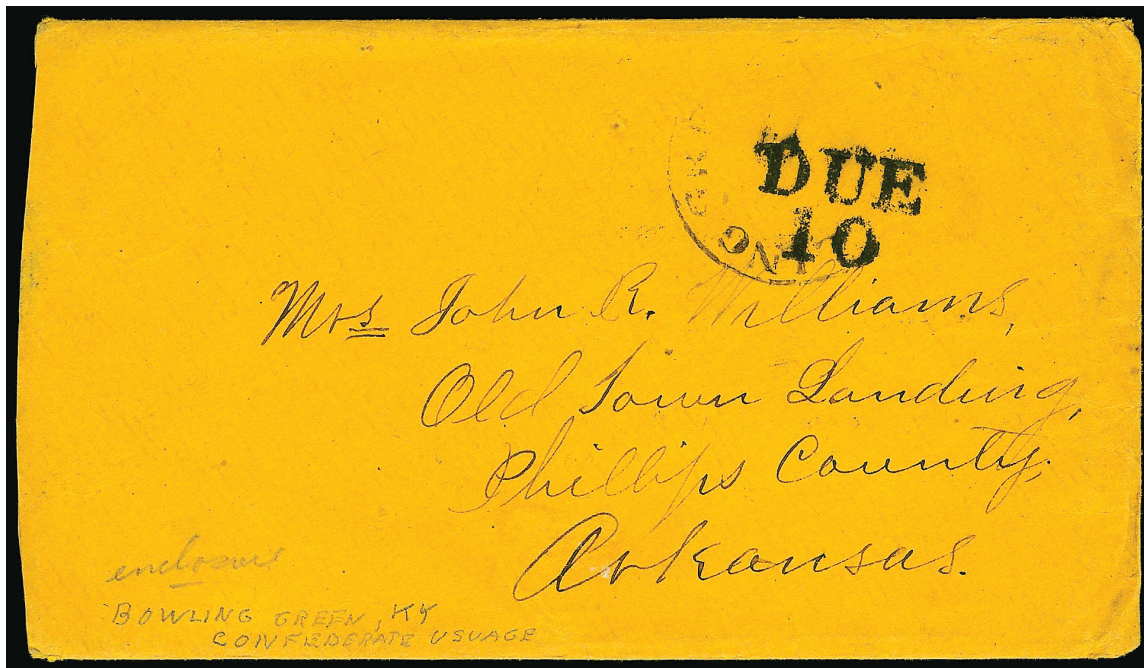 DUE
10
ING GRE
Mrs John R. Williams,
Old Town Landing,
Phillips County,
Arkansas.
enclosure
BOWLING GREEN, KY
CONFEDERATE USUAGE